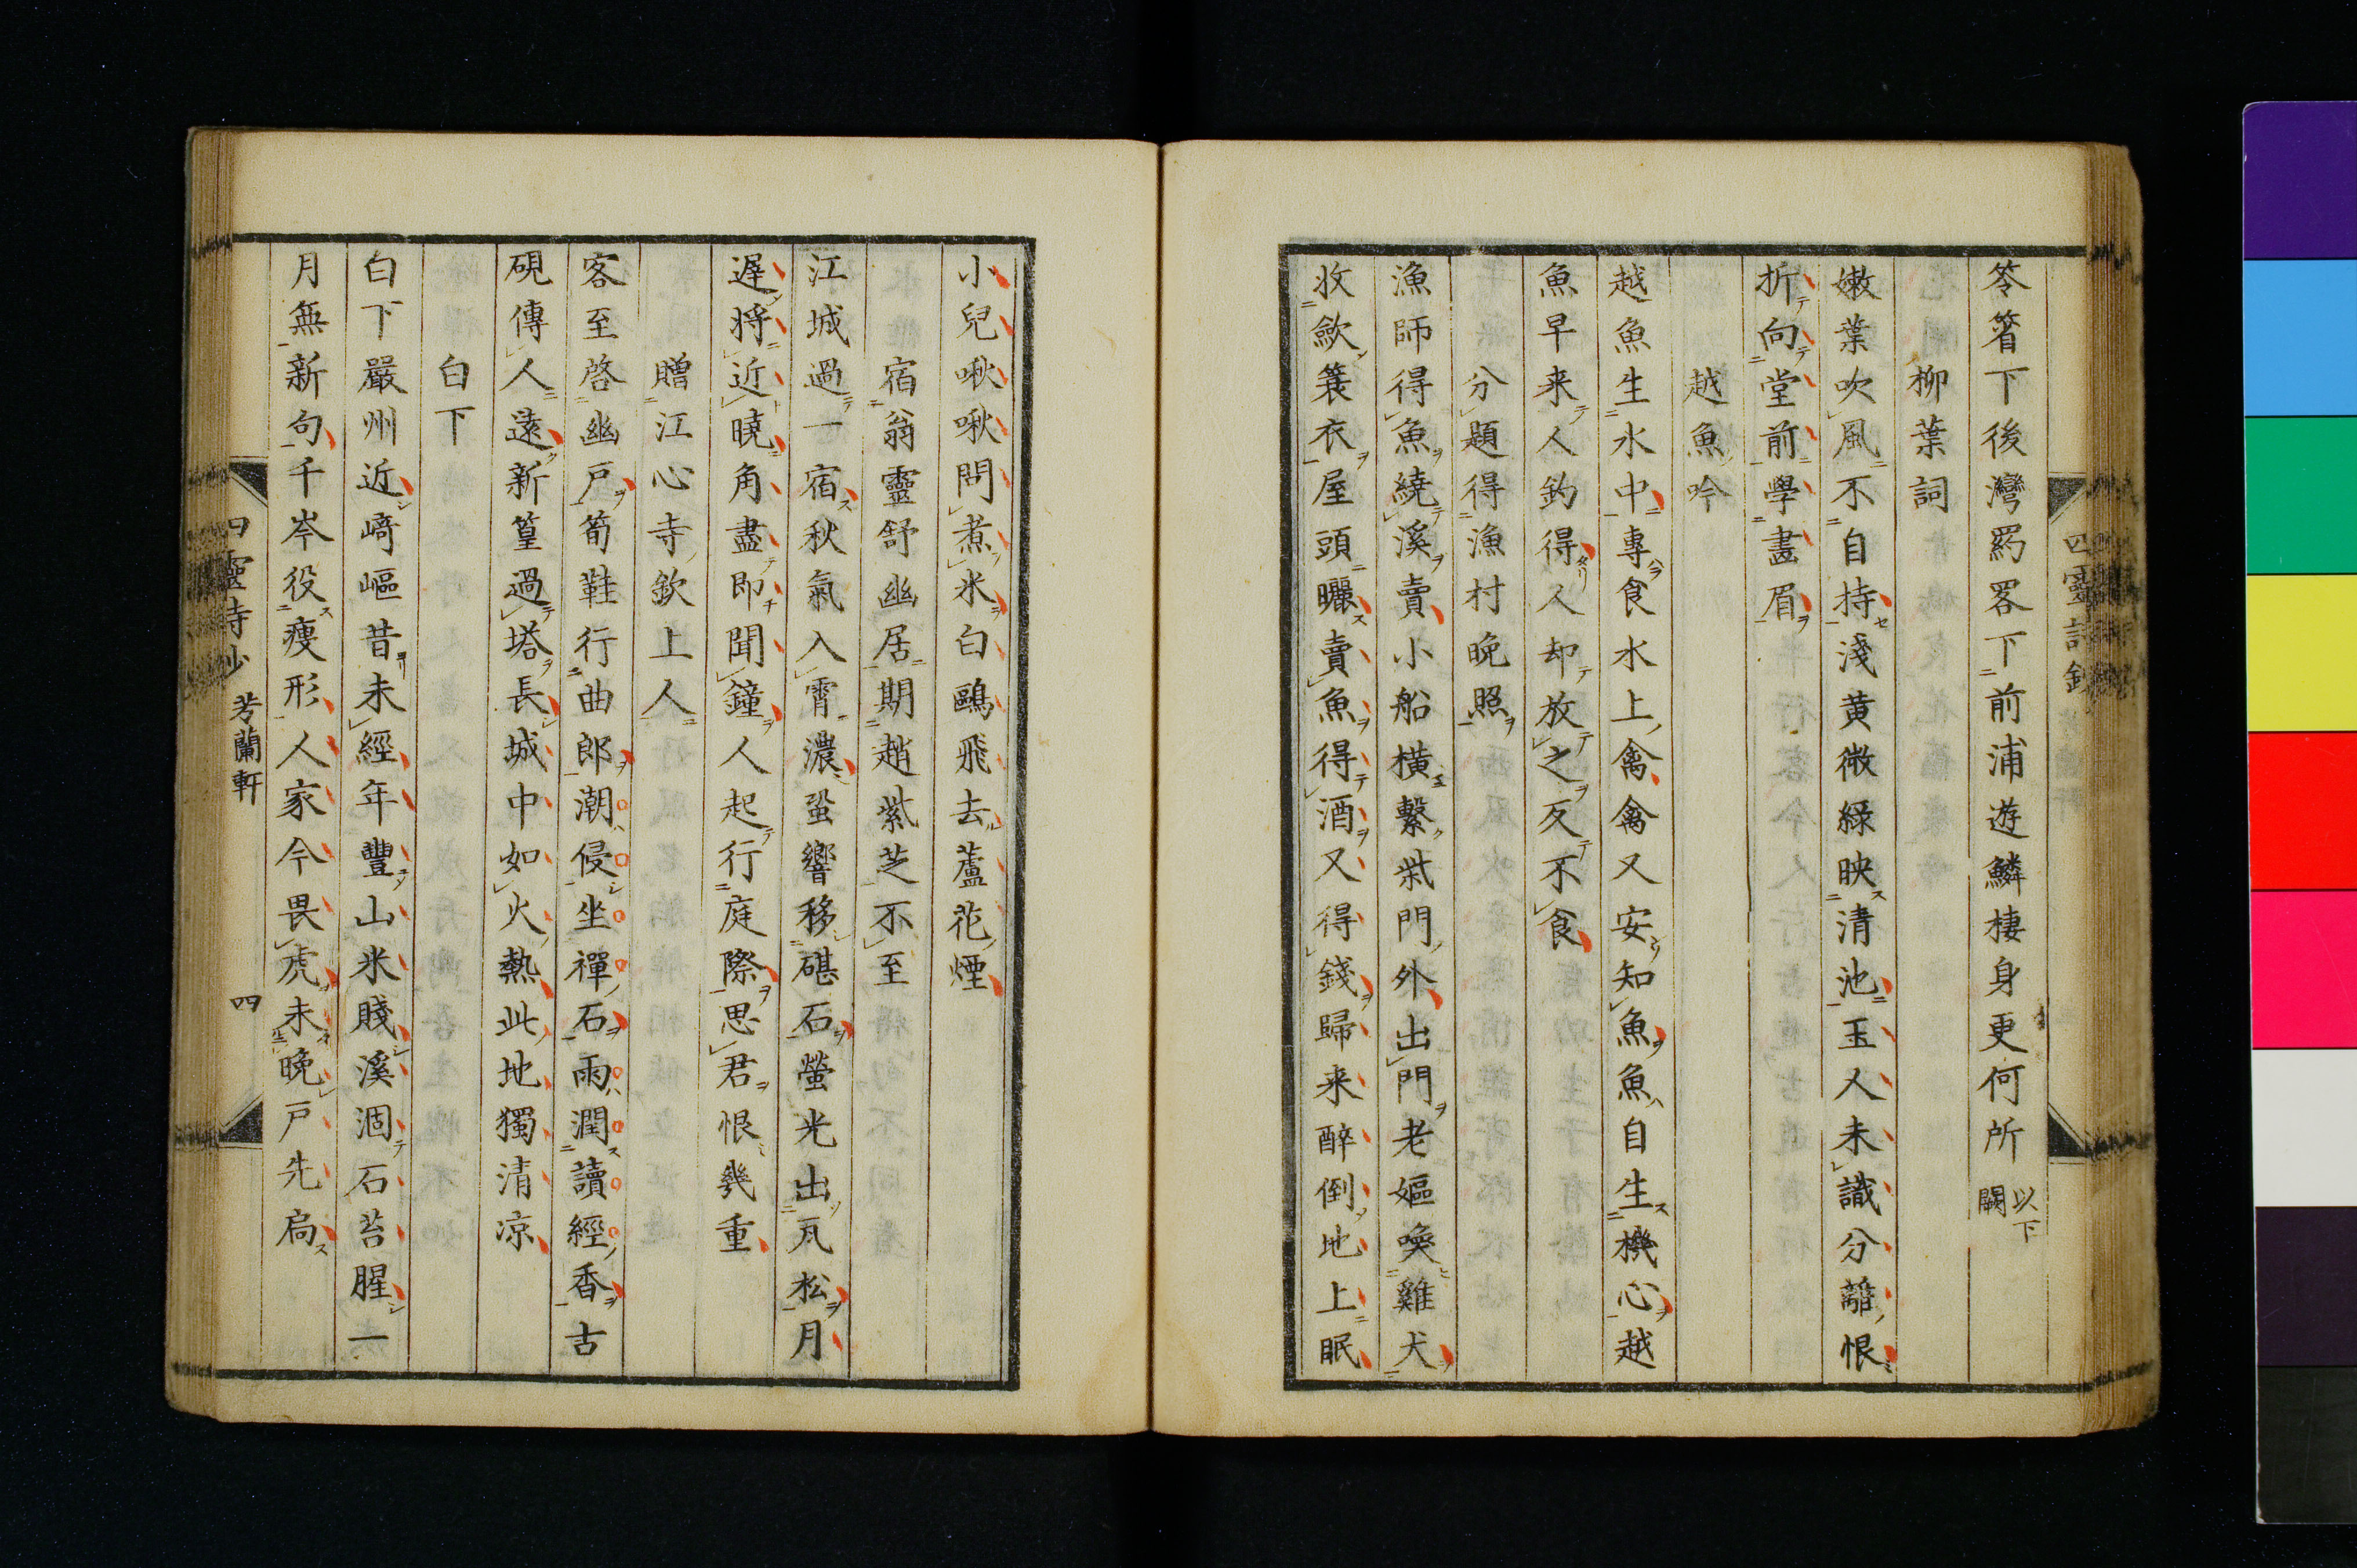 笭箵下後灣罟罟下前浦遊鱗棲身更何所 以下闕
柳葉詞
嫩葉吹風不自持淺黄微緑映清池玉人未識分離恨
折向堂前學畫眉
越魚吟
越魚生水中專食水上禽禽又安知魚魚自生機心越
魚早来人釣得人却放之反不食
分題得漁村晩照
漁師得魚繞溪賣小船横繫柴門外出門老嫗喚雞犬
收歛蓑衣屋頭曬賣魚得酒又得錢歸来醉倒地上眠
小兒啾啾問煮米白鷗飛去蘆花煙
宿翁靈舒幽居期趙紫芝不至
江城過一宿秋氣入霄濃蛩響移碪石螢光出瓦松月
遲将近曉角盡即聞鐘人起行庭際思君恨幾重
贈江心寺欽上人
客至啓幽戸筍鞋行曲郎潮侵坐禪石雨潤讀經香古
硯傳人遠新篁過塔長城中如火熱此地獨清凉
白下
白下嚴州近﨑嶇昔未經年豐山米賤溪涸石苔腥一
月無新句千岑役瘦形人家今畏虎未晩戸先扃
四靈詩鈔 芳蘭軒 四